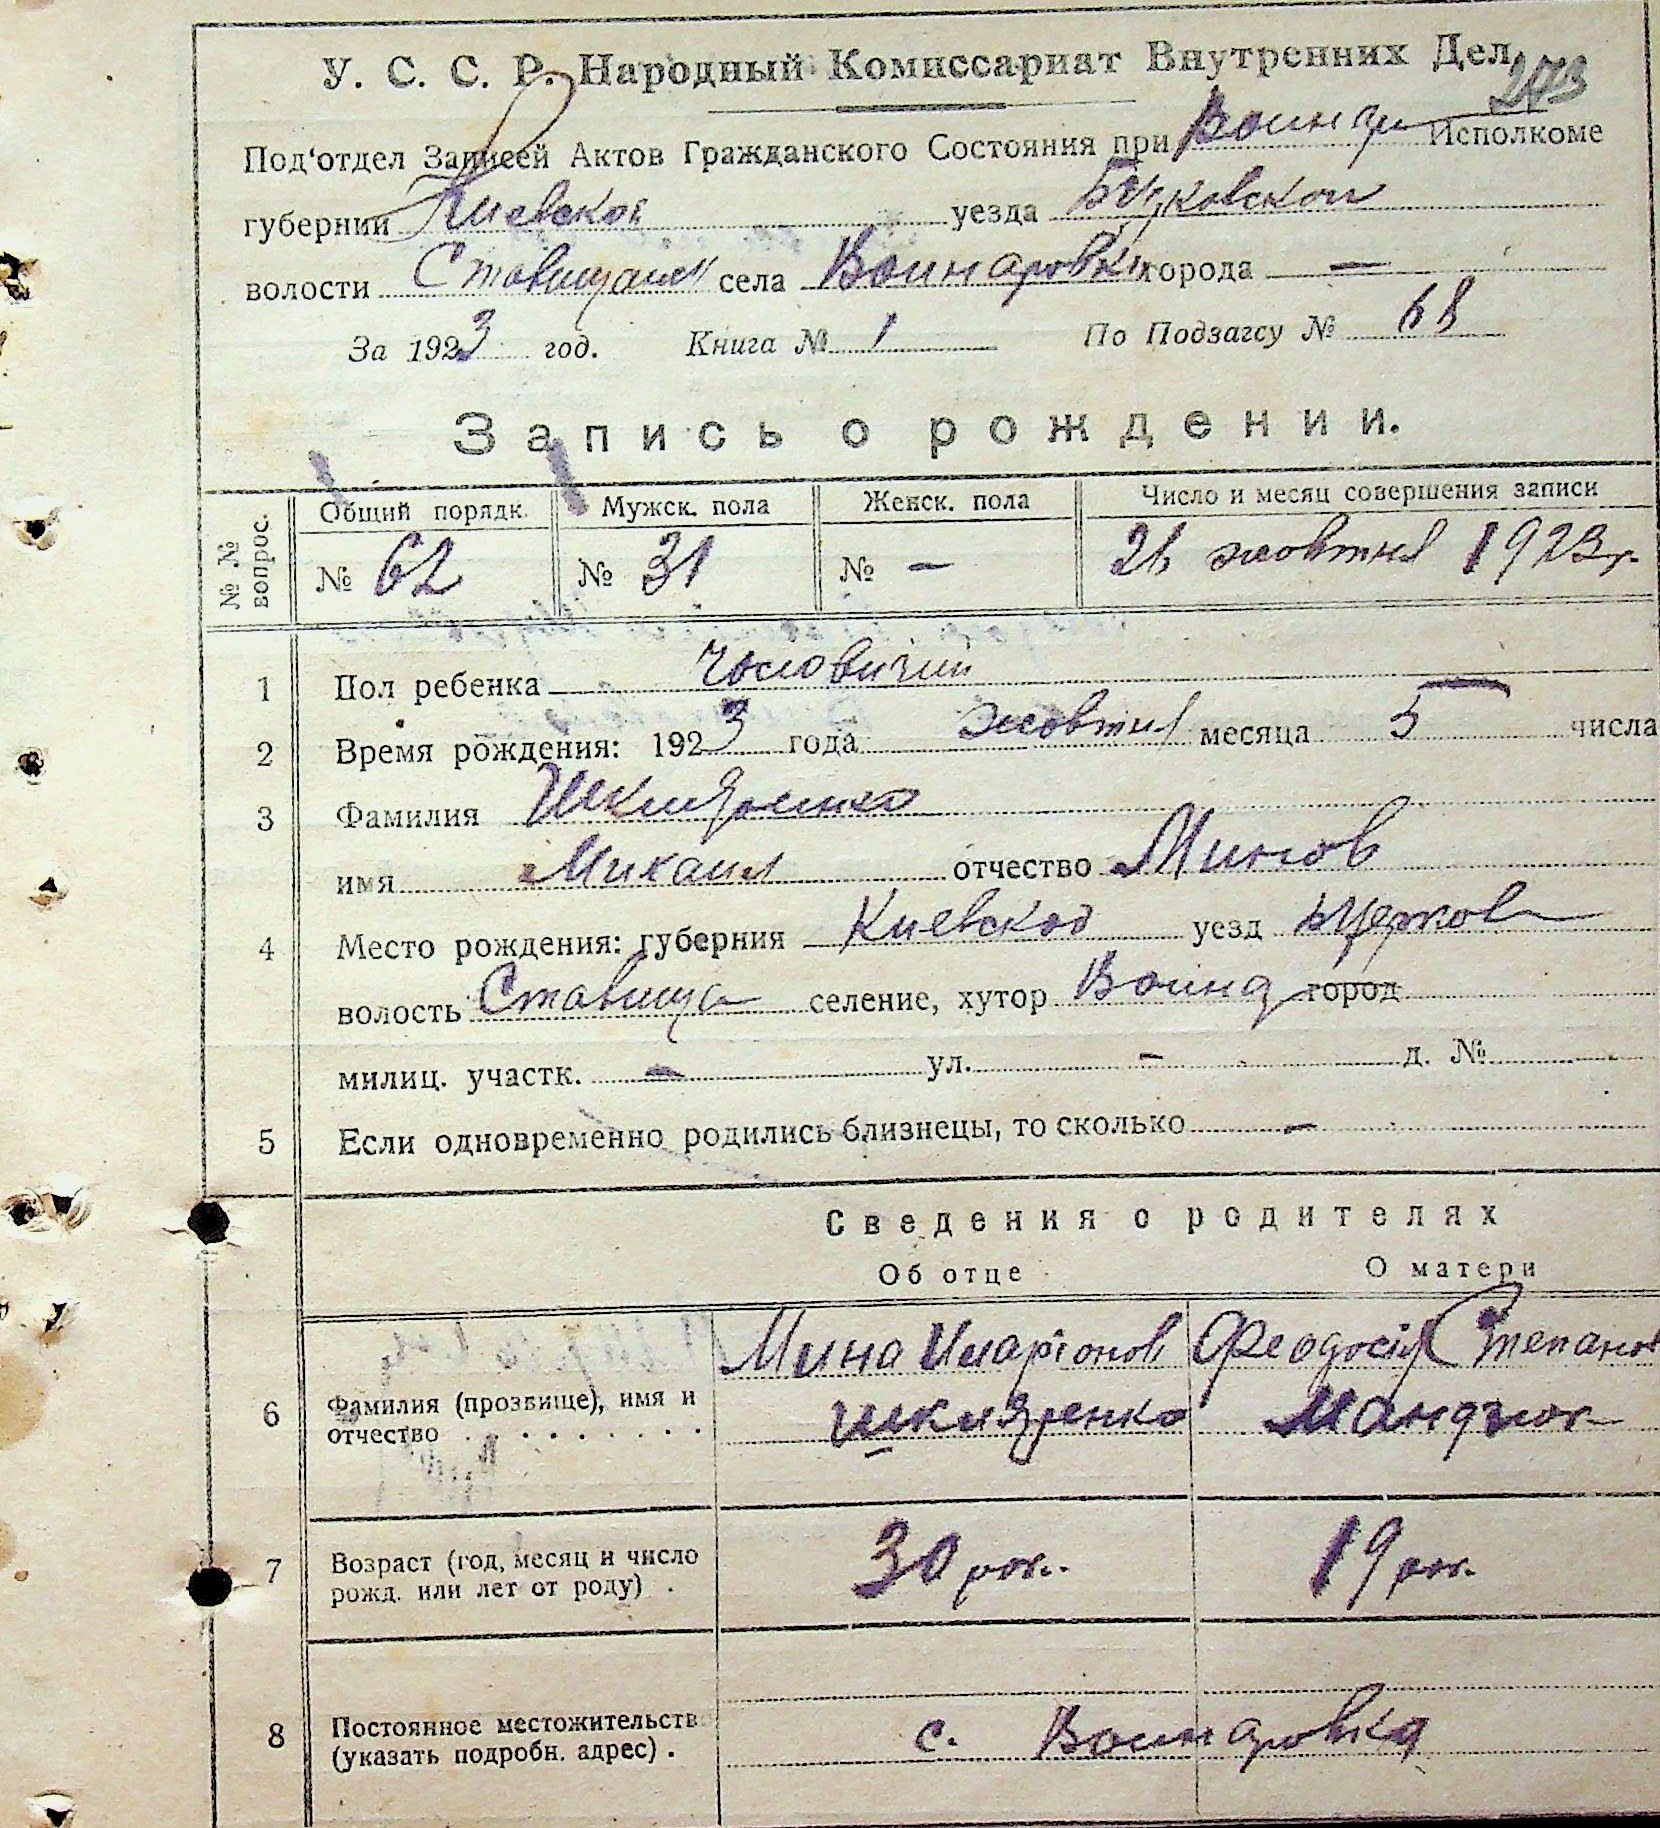 У. С. С. Р. Народный Комиссариат Внутренних Дел.
273
Под'отдел Записей Актов Гражданского Состояния при Воинар Исполкоме
губернии Киевской уезда Б Цуковской
волости Ставищанск села Воинаровки города —
За 1923 год. Книга № 1 По Подзагсу № 68
Запись о рождении.
№ № вопрос. Общий порядк. Мужск. пола Женск. пола Число и месяц совершения записи
№ 62 № 31 № — 21 жовтня 1923 г.
1 Пол ребенка чоловичий
2 Время рождения: 1923 года жовтня месяца 5 числа
3 Фамилия Шкляренко
имя Михаил отчество Минов
4 Место рождения: губерния Киевской уезд БЦерков
волость Ставища селение, хутор Воинар город
милиц. участк. — ул. — д. №
5 Если одновременно родились близнецы, то сколько —
Сведения о родителях
Об отце О матери
Мина Иларіонов Феодосія Степанов
6 Фамилия (прозвище), имя и отчество Шкляренко Мандзюк
7 Возраст (год, месяц и число рожд. или лет от роду) . 30 рок. 19 рок.
8 Постоянное местожительств (указать подробн. адрес) . с. Воинаровка